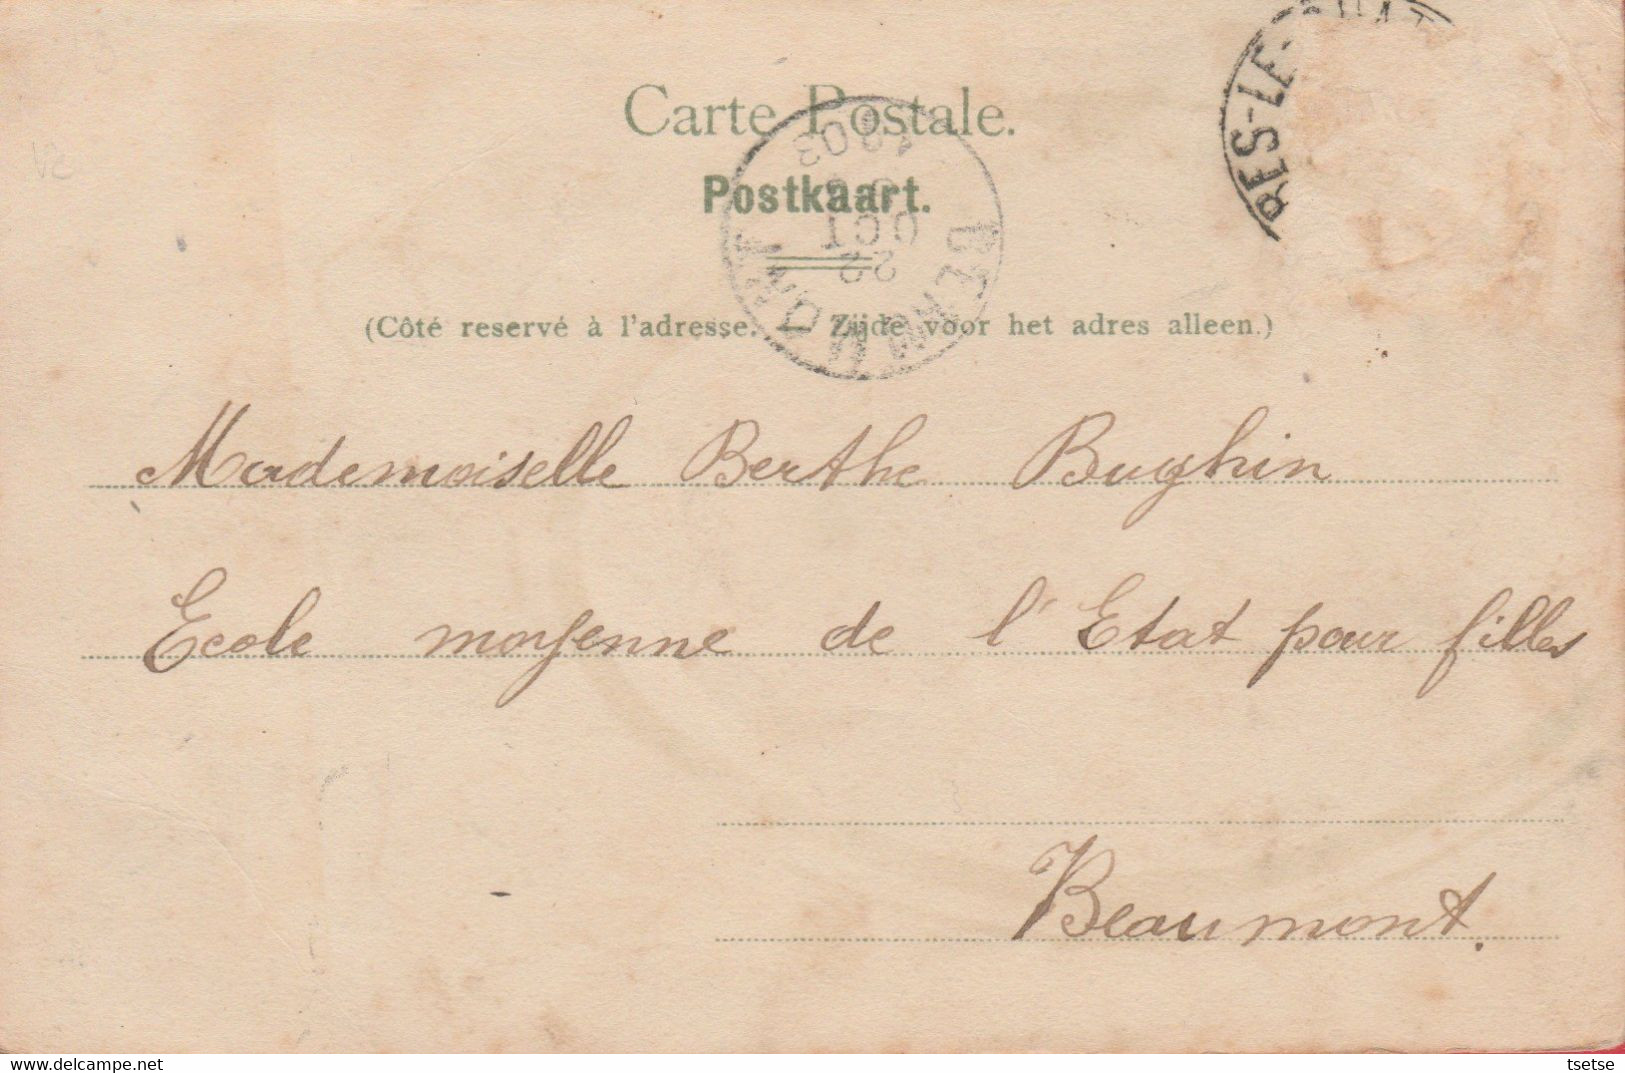 Carte Postale.
Postkaart.
RES-LE-
BEAUMONT
22
OCT
1903
(Côté reservé à l'adresse. — Zijde voor het adres alleen.)
Mademoiselle Berthe Bughin
Ecole moyenne de l'Etat pour filles
Beaumont.
delcampe.net
tsetse